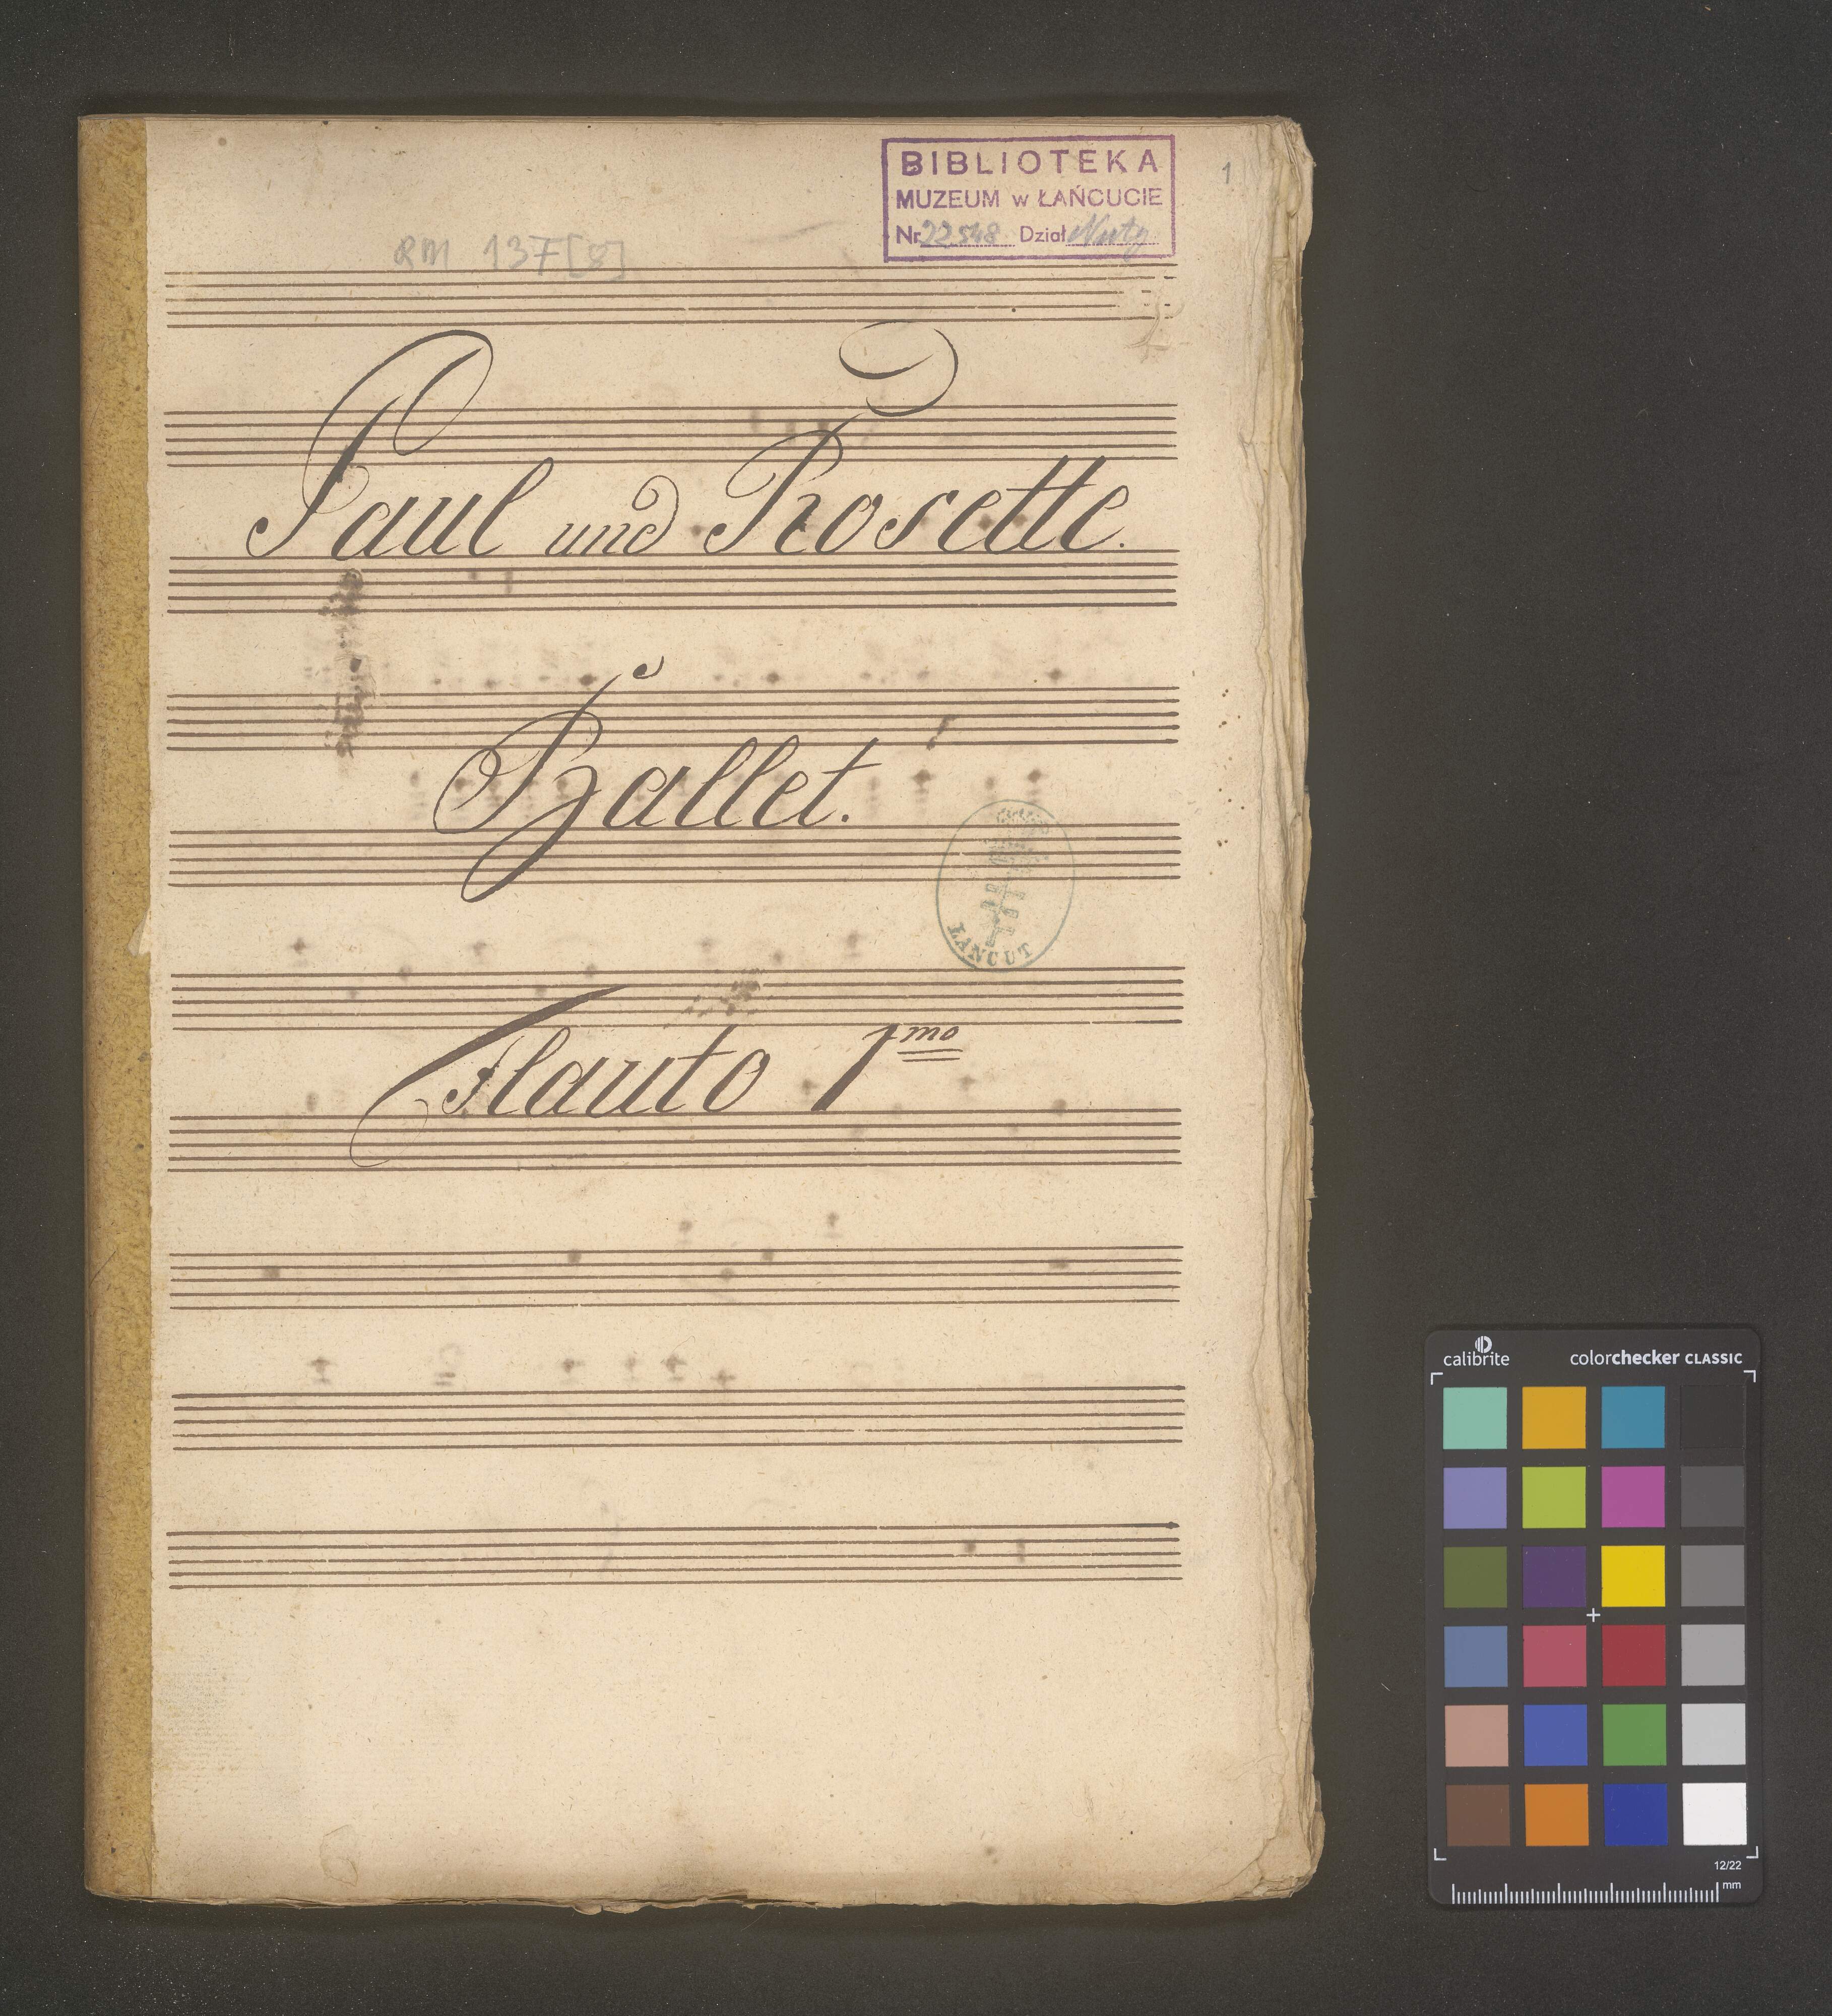 BIBLIOTEKA
MUZEUM w ŁAŃCUCIE
Nr 22548 Dział Nuty
1
RM 137[8]
Paul und Rosette.
Ballet.
ŁANCUT
Flauto 1mo
calibrite
colorchecker CLASSIC
12/22
mm